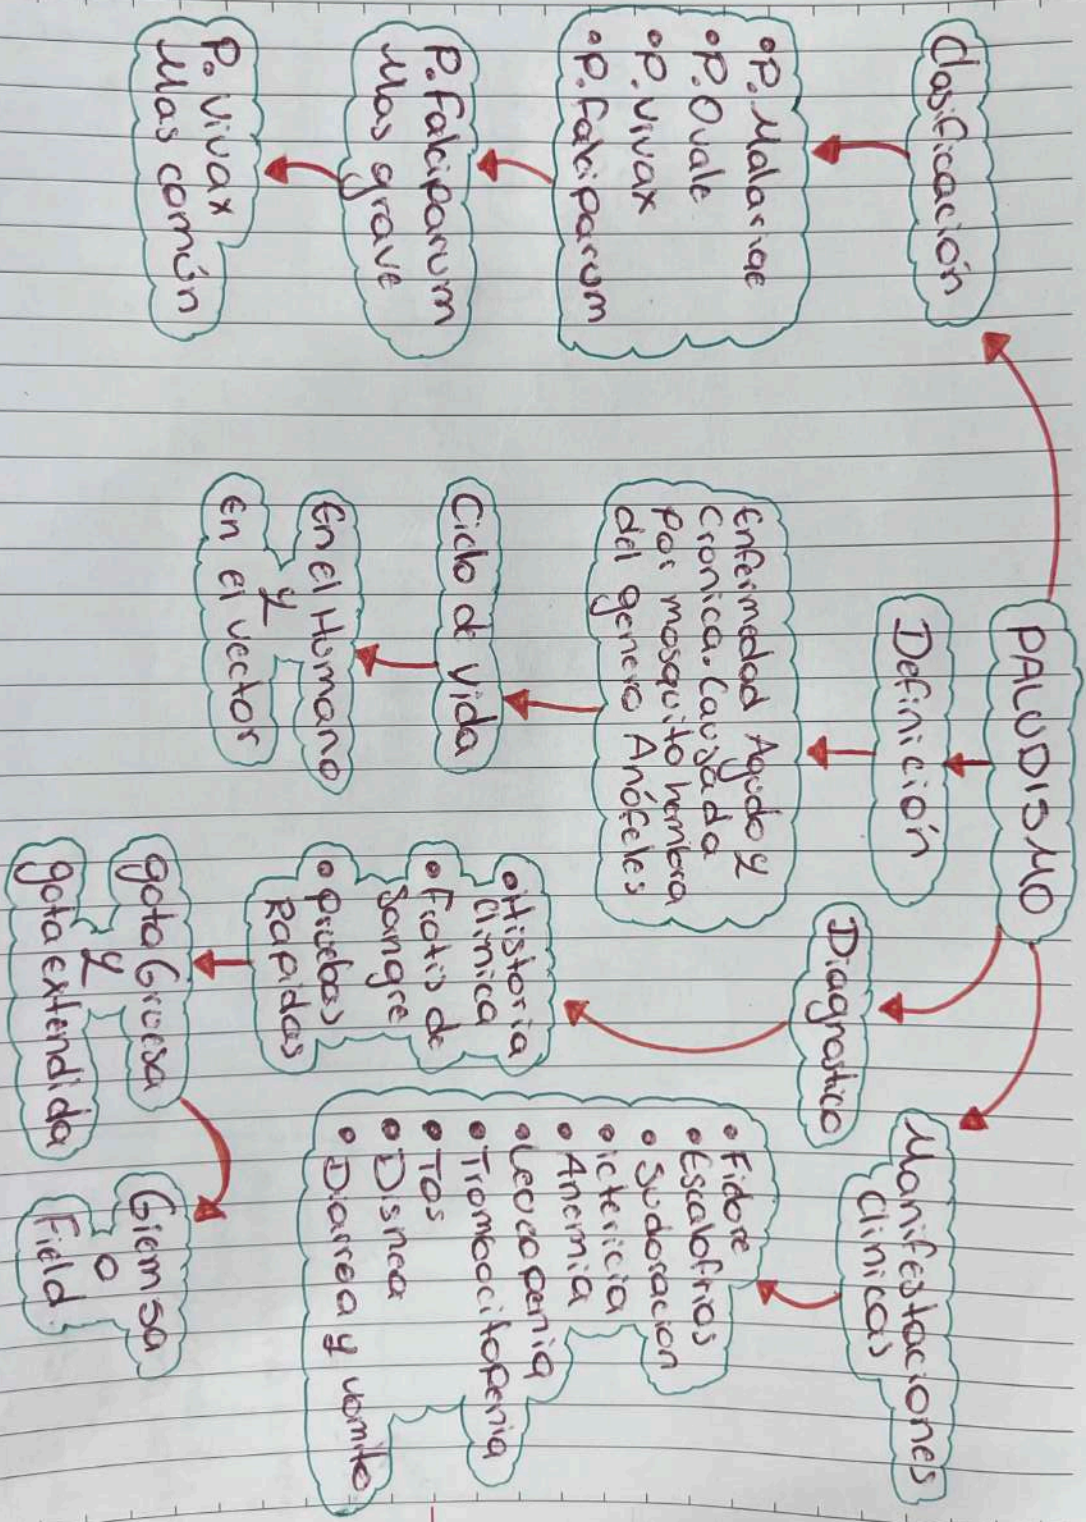 PALUDISMO
Clasificación
• P. Malariae
• P. Ovale
• P. Vivax
• P. Falciparum
P. Falciparum
Mas grave
P. Vivax
Mas común
Definición
Enfermedad Agudo y
Cronica. Causada
por mosquito hembra
del genero Anófeles
Ciclo de vida
En el Humano
y
En el vector
Diagnostico
• Historia
clinica
• Frotis de
Sangre
• pruebas
Rapidas
gota Gruesa
y
gota extendida
Giemsa
o
Field
Manifestaciones
Clinicas
• Fidore
• Escalofrios
• Sudoracion
• ictericia
• Anemia
• Leucopenia
• Trombocitopenia
• Tos
• Disnea
• Diarrea y vomito